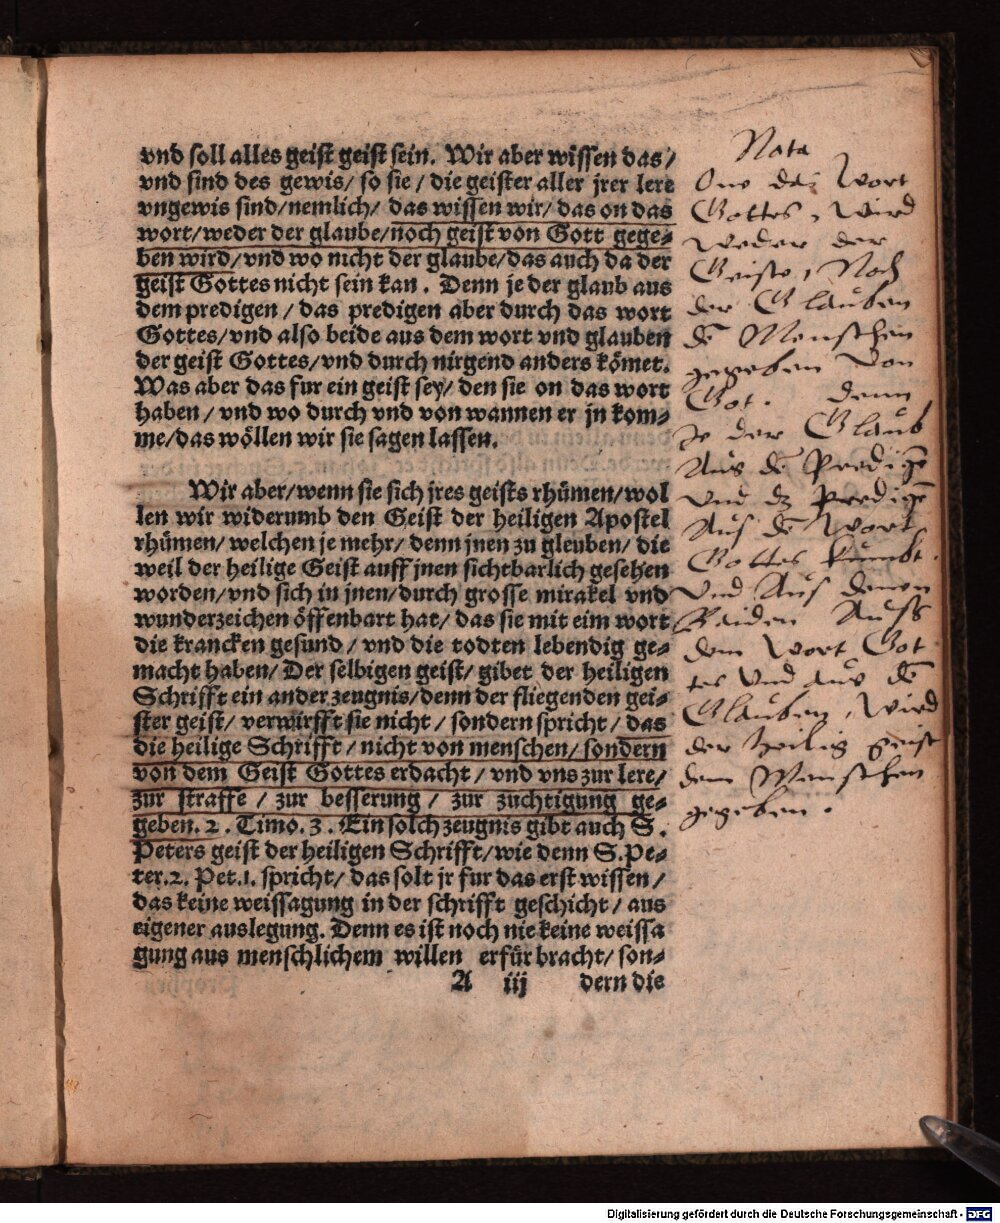 vnd soll alles geist geist sein. Wir aber wissen das/
vnd sind des gewis/ so sie / die geister aller jrer lere
vngewis sind/nemlich/ das wissen wir/ das on das
wort/weder der glaube/noch geist von Gott gege⸗
ben wird/vnd wo nicht der glaube/das auch da der
geist Gottes nicht sein kan. Denn je der glaub aus
dem predigen / das predigen aber durch das wort
Gottes/vnd also beide aus dem wort vnd glauben
der geist Gottes/vnd durch nirgend anders kömet.
Was aber das fur ein geist sey/ den sie on das wort
haben / vnd wo durch vnd von wannen er jn kom⸗
me/das wöllen wir sie sagen lassen.
Wir aber/wenn sie sich jres geists rhümen/wol
len wir widerumb den Geist der heiligen Apostel
rhümen/ welchen je mehr/ denn jnen zu gleuben/ die
weil der heilige Geist auff jnen sichtbarlich gesehen
worden/vnd sich in jnen/durch grosse mirakel vnd
wunderzeichen öffenbart hat/ das sie mit eim wort
die krancken gesund / vnd die todten lebendig ge⸗
macht haben/ Der selbigen geist/ gibet der heiligen
Schrifft ein ander zeugnis/denn der fliegenden gei⸗
ster geist/ verwirfft sie nicht / sondern spricht/ das
die heilige Schrifft / nicht von menschen/ sondern
von dem Geist Gottes erdacht / vnd vns zur lere/
zur straffe / zur besserung / zur zuchtigung ge⸗
geben. 2. Timo. 3. Ein solch zeugnis gibt auch S.
Peters geist der heiligen Schrifft/wie denn S.Pe⸗
ter.2. Pet.1. spricht/ das solt jr fur das erst wissen /
das keine weissagung in der schrifft geschicht / aus
eigener auslegung. Denn es ist noch nie keine weissa
gung aus menschlichem willen erfür bracht/ son⸗
A iij dern die
Nota
One daz Wort
Gottes, Wird
Weder der
Geiste, Noch
der Glauben
dē Menschen
gegeben von
Got. denn
Je der Glaub
Aus dē Predigē
Vnd dz predigē
Aus dē Wort
Gottes kumbt.
Vnd Aus denen
Baiden Auss
dem Wort Got
tes Vnd aus dē
Glauben, Wird
der heilig geist
dem Menschen
gegeben.
Digitalisierung gefördert durch die Deutsche Forschungsgemeinschaft - DFG